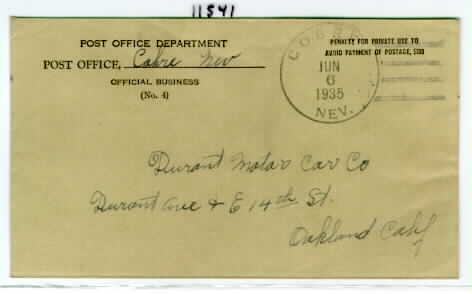 11541
POST OFFICE DEPARTMENT
POST OFFICE, Cobre Nev
OFFICIAL BUSINESS
(No. 4)
PENALTY FOR PRIVATE USE TO
AVOID PAYMENT OF POSTAGE, $300
COBRE
JUN
6
1935
NEV.
Durant Motor Car Co
Durant Ave & E 14th St.
Oakland Calif